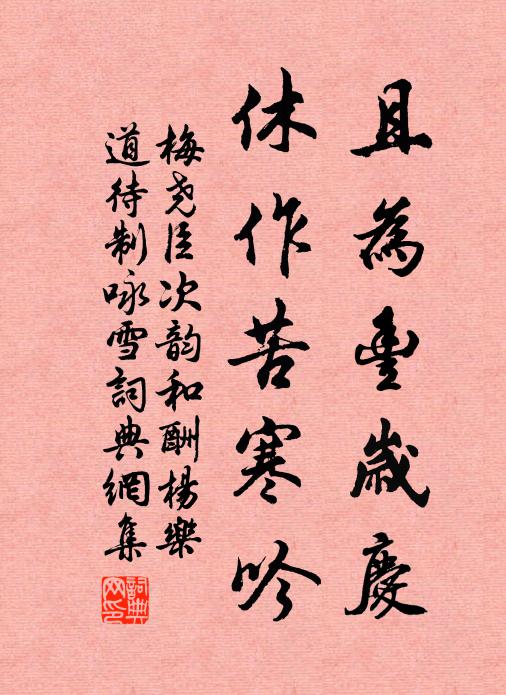 且為豐歲慶
休作苦寒吟
梅堯臣次韵和酬楊樂
道待制咏雪詞典網集
詞典網印